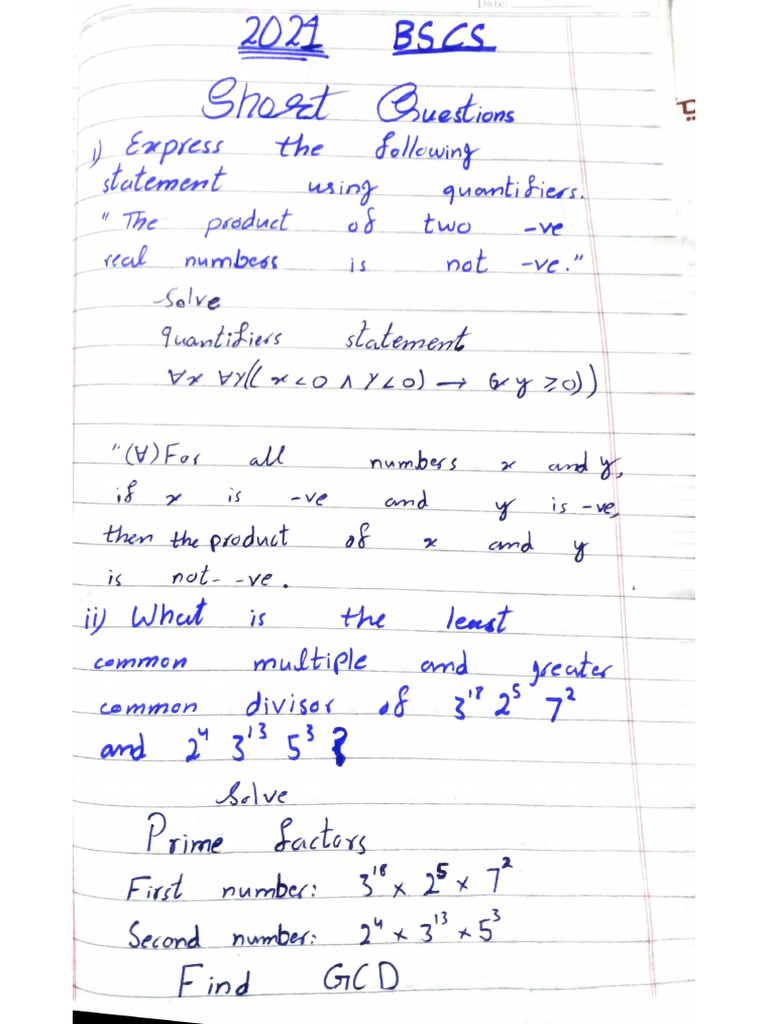 Date:
2021 BSCS
Short Questions
i) Express the following
statement using quantifiers.
"The product of two -ve
real numbers is not -ve."
Solve
quantifiers statement
∀x ∀y((x<0 ∧ y<0) → (xy ≥0))
"(∀) For all numbers x and y,
if x is -ve and y is -ve,
then the product of x and y
is not -ve.
ii) What is the least
common multiple and greater
common divisor of 3¹⁸ 2⁵ 7²
and 2⁴ 3¹³ 5³ ?
Solve
Prime factors
First number: 3¹⁸ × 2⁵ × 7²
Second number: 2⁴ × 3¹³ × 5³
Find GCD